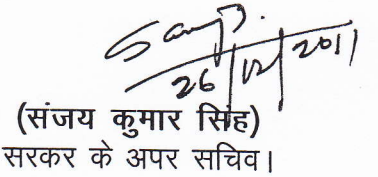 Sanjay
26/12/2011
(संजय कुमार सिंह)
सरकर के अपर सचिव।